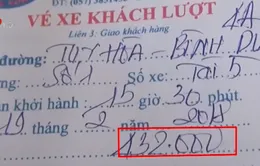 VÉ XE KHÁCH LƯỢT
Liên 3: Giao khách hàng
đường: TUY HÒA - BÌNH DƯ
Số xe: Tài 5
khởi hành: 15 giờ 30 phút.
19 tháng 2 năm
432.000